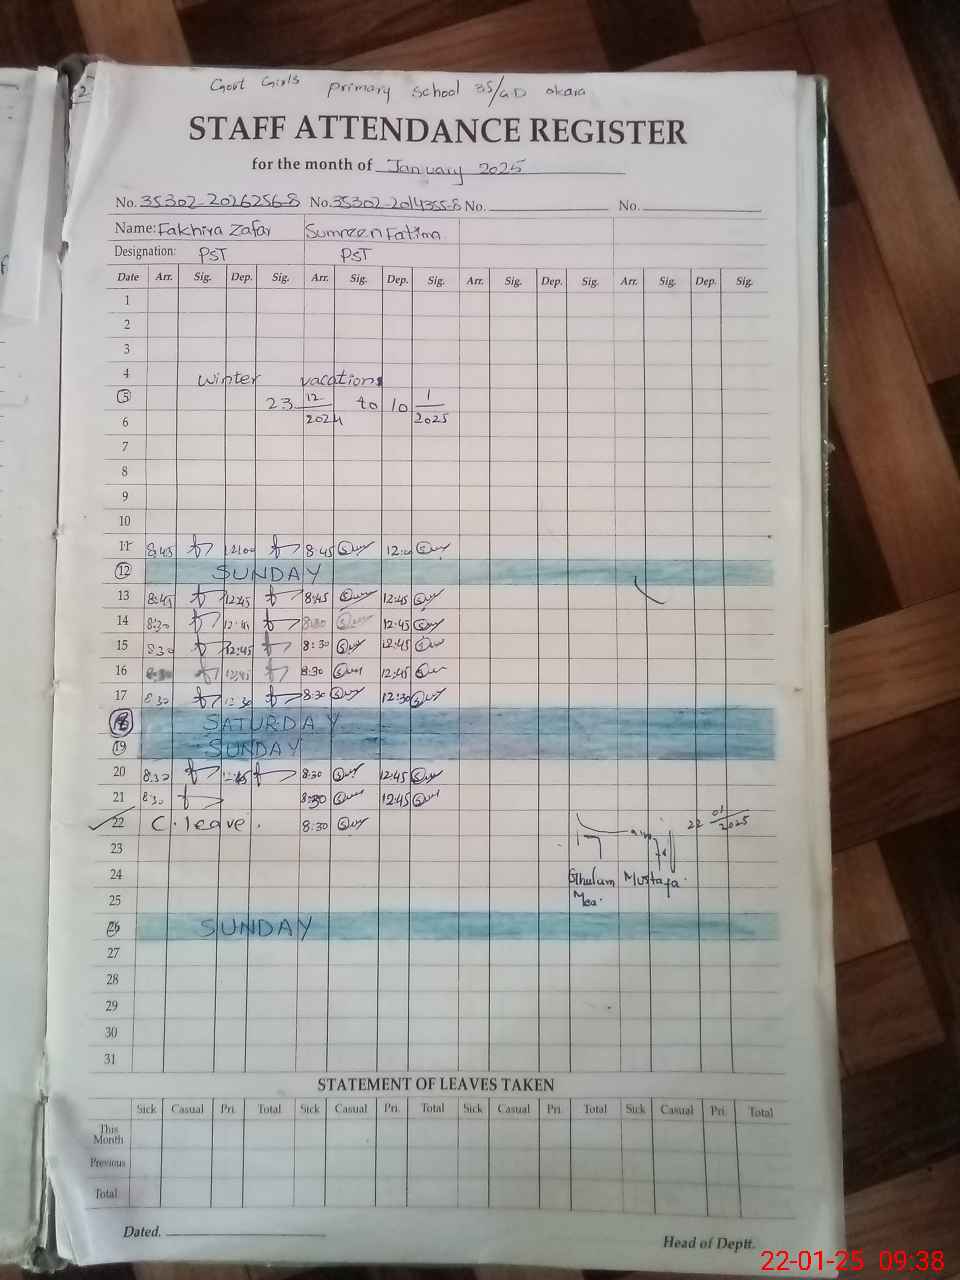 Govt Girls primary school 35/G.D okara
STAFF ATTENDANCE REGISTER
for the month of January 2025
No. 35302-2026256-8 No. 35302-2014355-8 No. No.
Name: Fakhira Zafar Sumreen Fatima
Designation: PST PST
Date Arr. Sig. Dep. Sig. Arr. Sig. Dep. Sig. Arr. Sig. Dep. Sig. Arr. Sig. Dep. Sig.
1
2
3
4 winter vacations
5 23 12/2024 to 10 1/2025
6
7
8
9
10
11 8:45 12:00 8:45 12:00
12 SUNDAY
13 8:45 12:45 8:45 12:45
14 8:30 12:45 8:30 12:45
15 8:30 12:45 8:30 12:45
16 8:30 12:45 8:30 12:45
17 8:30 12:30 8:30 12:30
18 SATURDAY
19 SUNDAY
20 8:30 12:45 8:30 12:45
21 8:30 8:30 12:45
22 C. leave. 8:30 22 01/2025
23
24 Ghulam Mustafa
25 Mea.
26 SUNDAY
27
28
29
30
31
STATEMENT OF LEAVES TAKEN
Sick Casual Pri. Total Sick Casual Pri. Total Sick Casual Pri. Total Sick Casual Pri. Total
This Month
Previous
Total
Dated.
Head of Deptt.
22-01-25 09:38